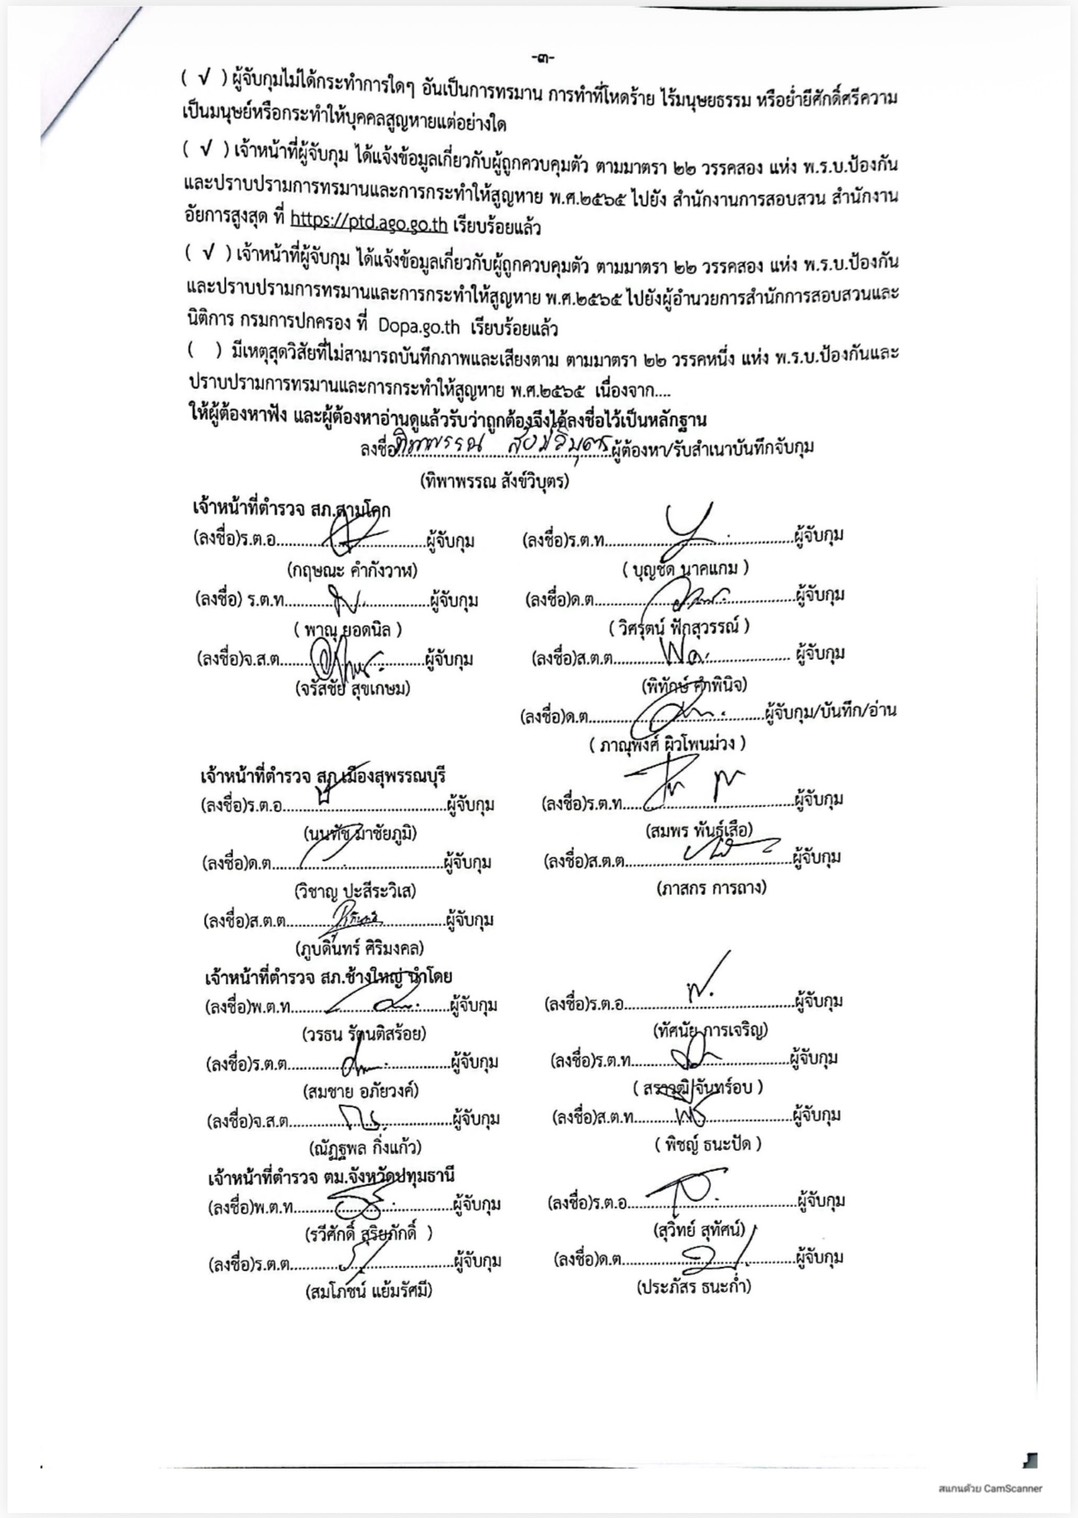 -๓-
( √ ) ผู้จับกุมไม่ได้กระทำการใดๆ อันเป็นการทรมาน การทำที่โหดร้าย ไร้มนุษยธรรม หรือย่ำยีศักดิ์ศรีความ
เป็นมนุษย์หรือกระทำให้บุคคลสูญหายแต่อย่างใด
( √ ) เจ้าหน้าที่ผู้จับกุม ได้แจ้งข้อมูลเกี่ยวกับผู้ถูกควบคุมตัว ตามมาตรา ๒๒ วรรคสอง แห่ง พ.ร.บ.ป้องกัน
และปราบปรามการทรมานและการกระทำให้สูญหาย พ.ศ.๒๕๖๕ ไปยัง สำนักงานการสอบสวน สำนักงาน
อัยการสูงสุด ที่ https://ptd.ago.go.th เรียบร้อยแล้ว
( √ ) เจ้าหน้าที่ผู้จับกุม ได้แจ้งข้อมูลเกี่ยวกับผู้ถูกควบคุมตัว ตามมาตรา ๒๒ วรรคสอง แห่ง พ.ร.บ.ป้องกัน
และปราบปรามการทรมานและการกระทำให้สูญหาย พ.ศ.๒๕๖๕ ไปยังผู้อำนวยการสำนักการสอบสวนและ
นิติการ กรมการปกครอง ที่ Dopa.go.th เรียบร้อยแล้ว
( ) มีเหตุสุดวิสัยที่ไม่สามารถบันทึกภาพและเสียงตาม ตามมาตรา ๒๒ วรรคหนึ่ง แห่ง พ.ร.บ.ป้องกันและ
ปราบปรามการทรมานและการกระทำให้สูญหาย พ.ศ.๒๕๖๕ เนื่องจาก....
ให้ผู้ต้องหาฟัง และผู้ต้องหาอ่านดูแล้วรับว่าถูกต้องจึงได้ลงชื่อไว้เป็นหลักฐาน
ลงชื่อ ทิพาพรรณ สังข์วิบุตร ผู้ต้องหา/รับสำเนาบันทึกจับกุม
(ทิพาพรรณ สังข์วิบุตร)
เจ้าหน้าที่ตำรวจ สภ.สามโคก
(ลงชื่อ)ร.ต.อ..........................ผู้จับกุม (ลงชื่อ)ร.ต.ท..........................ผู้จับกุม
(กฤษณะ คำกังวาฬ) ( บุญชัด นาคแกม )
(ลงชื่อ) ร.ต.ท..........................ผู้จับกุม (ลงชื่อ)ด.ต..........................ผู้จับกุม
( พาณุ ยอดนิล ) ( วิศรุตน์ ฟักสุวรรณ์ )
(ลงชื่อ)จ.ส.ต..........................ผู้จับกุม (ลงชื่อ)ส.ต.ต.......................... ผู้จับกุม
(จรัสชัย สุขเกษม) (พิทักษ์ คำพินิจ)
(ลงชื่อ)ด.ต..........................ผู้จับกุม/บันทึก/อ่าน
( ภาณุพงศ์ ผิวโพนม่วง )
เจ้าหน้าที่ตำรวจ สภ.เมืองสุพรรณบุรี
(ลงชื่อ)ร.ต.อ..........................ผู้จับกุม (ลงชื่อ)ร.ต.ท..........................ผู้จับกุม
(นนทัช มาชัยภูมิ) (สมพร พันธุ์เสือ)
(ลงชื่อ)ด.ต..........................ผู้จับกุม (ลงชื่อ)ส.ต.ต..........................ผู้จับกุม
(วิชาญ ปะสีระวิเส) (ภาสกร การถาง)
(ลงชื่อ)ส.ต.ต..........................ผู้จับกุม
(ภูบดินทร์ ศิริมงคล)
เจ้าหน้าที่ตำรวจ สภ.ช้างใหญ่ นำโดย
(ลงชื่อ)พ.ต.ท..........................ผู้จับกุม (ลงชื่อ)ร.ต.อ..........................ผู้จับกุม
(วรธน รัตนติสร้อย) (ทัศนัย การเจริญ)
(ลงชื่อ)ร.ต.ต..........................ผู้จับกุม (ลงชื่อ)ร.ต.ท..........................ผู้จับกุม
(สมชาย อภัยวงค์) ( สราวุฒิ จันทร์อบ )
(ลงชื่อ)จ.ส.ต..........................ผู้จับกุม (ลงชื่อ)ส.ต.ท..........................ผู้จับกุม
(ณัฏฐพล กิ่งแก้ว) ( พิชญ์ ธนะปัด )
เจ้าหน้าที่ตำรวจ ตม.จังหวัดปทุมธานี
(ลงชื่อ)พ.ต.ท..........................ผู้จับกุม (ลงชื่อ)ร.ต.อ..........................ผู้จับกุม
(รวีศักดิ์ สุริยภักดิ์ ) (สุวิทย์ สุทัศน์)
(ลงชื่อ)ร.ต.ต..........................ผู้จับกุม (ลงชื่อ)ด.ต..........................ผู้จับกุม
(สมโภชน์ แย้มรัศมี) (ประภัสร ธนะก่ำ)
สแกนด้วย CamScanner